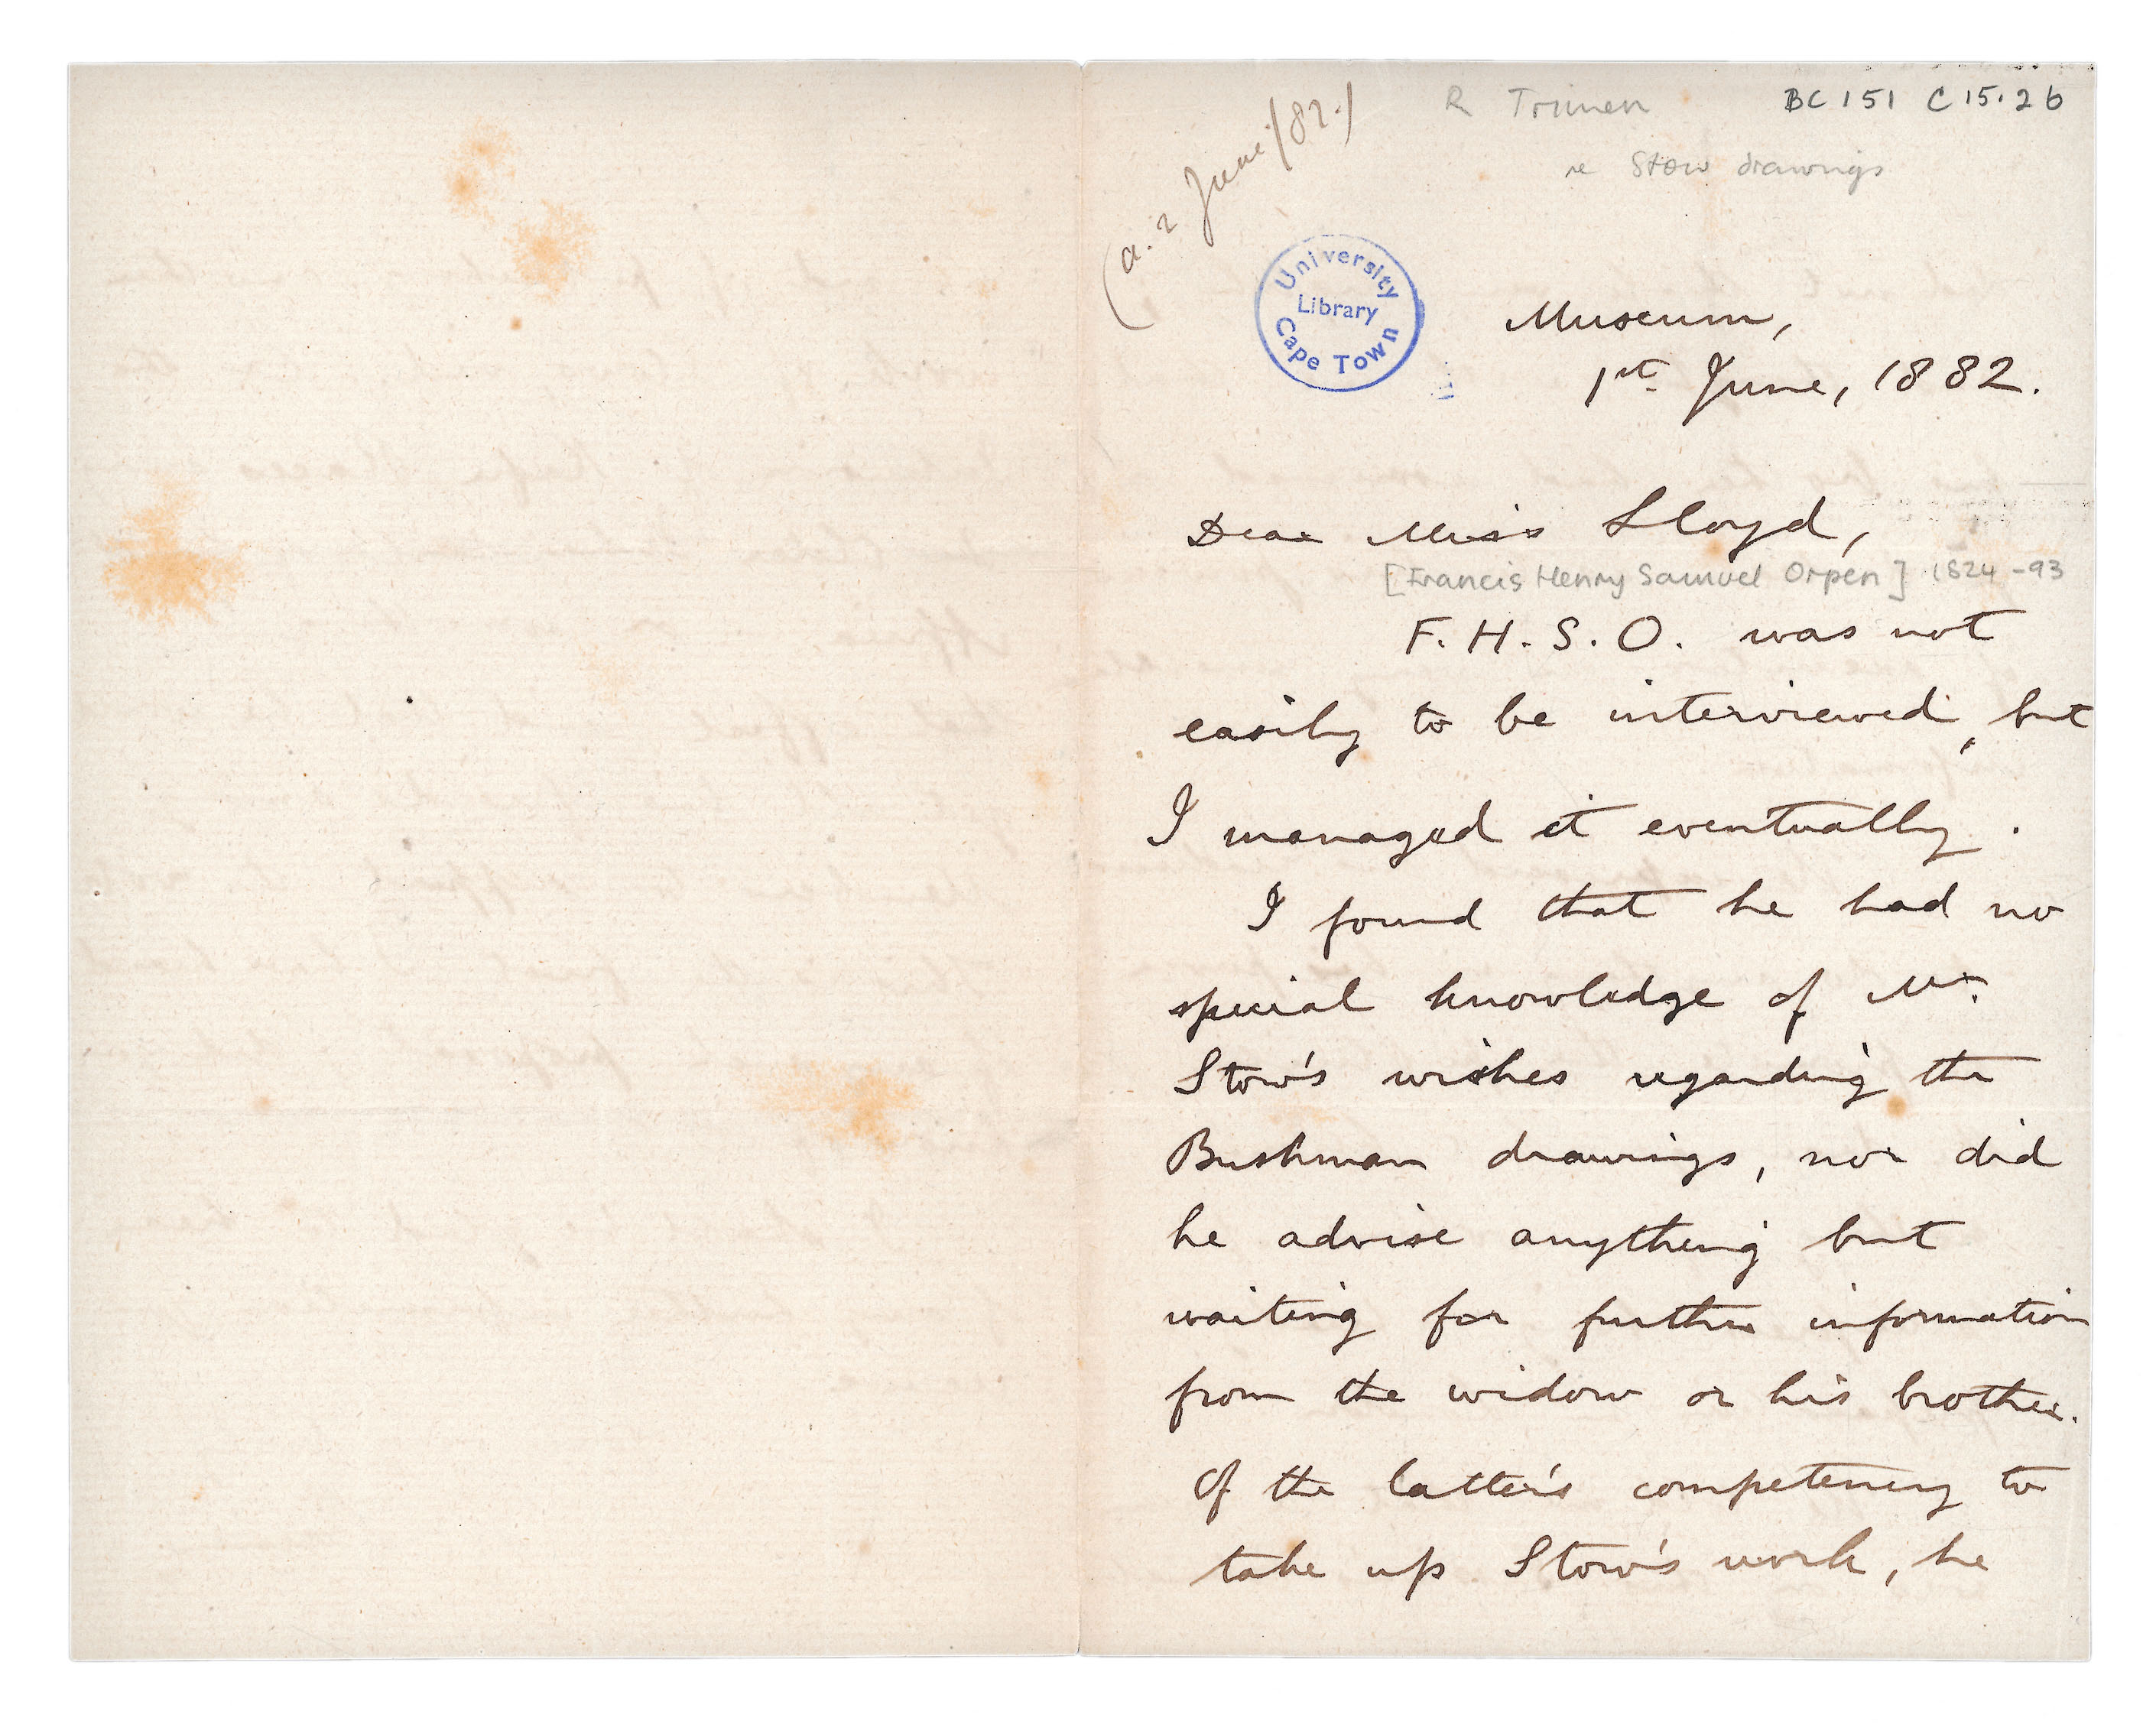 R Trimen BC 151 C 15.26
re Stow drawings
(a. 2 June/82.)
University
Library
Cape Town
Museum,
1st June, 1882.
Dear Miss Lloyd,
[Francis Henry Samuel Orpen] 1824 -93
F. H. S. O. was not
easily to be interviewed, but
I managed it eventually.
I found that he had no
special knowledge of Mr.
Stow's wishes regarding the
Bushman drawings, nor did
he advise anything but
waiting for further information
from the widow or his brother.
Of the latter's competency to
take up Stow's work, he